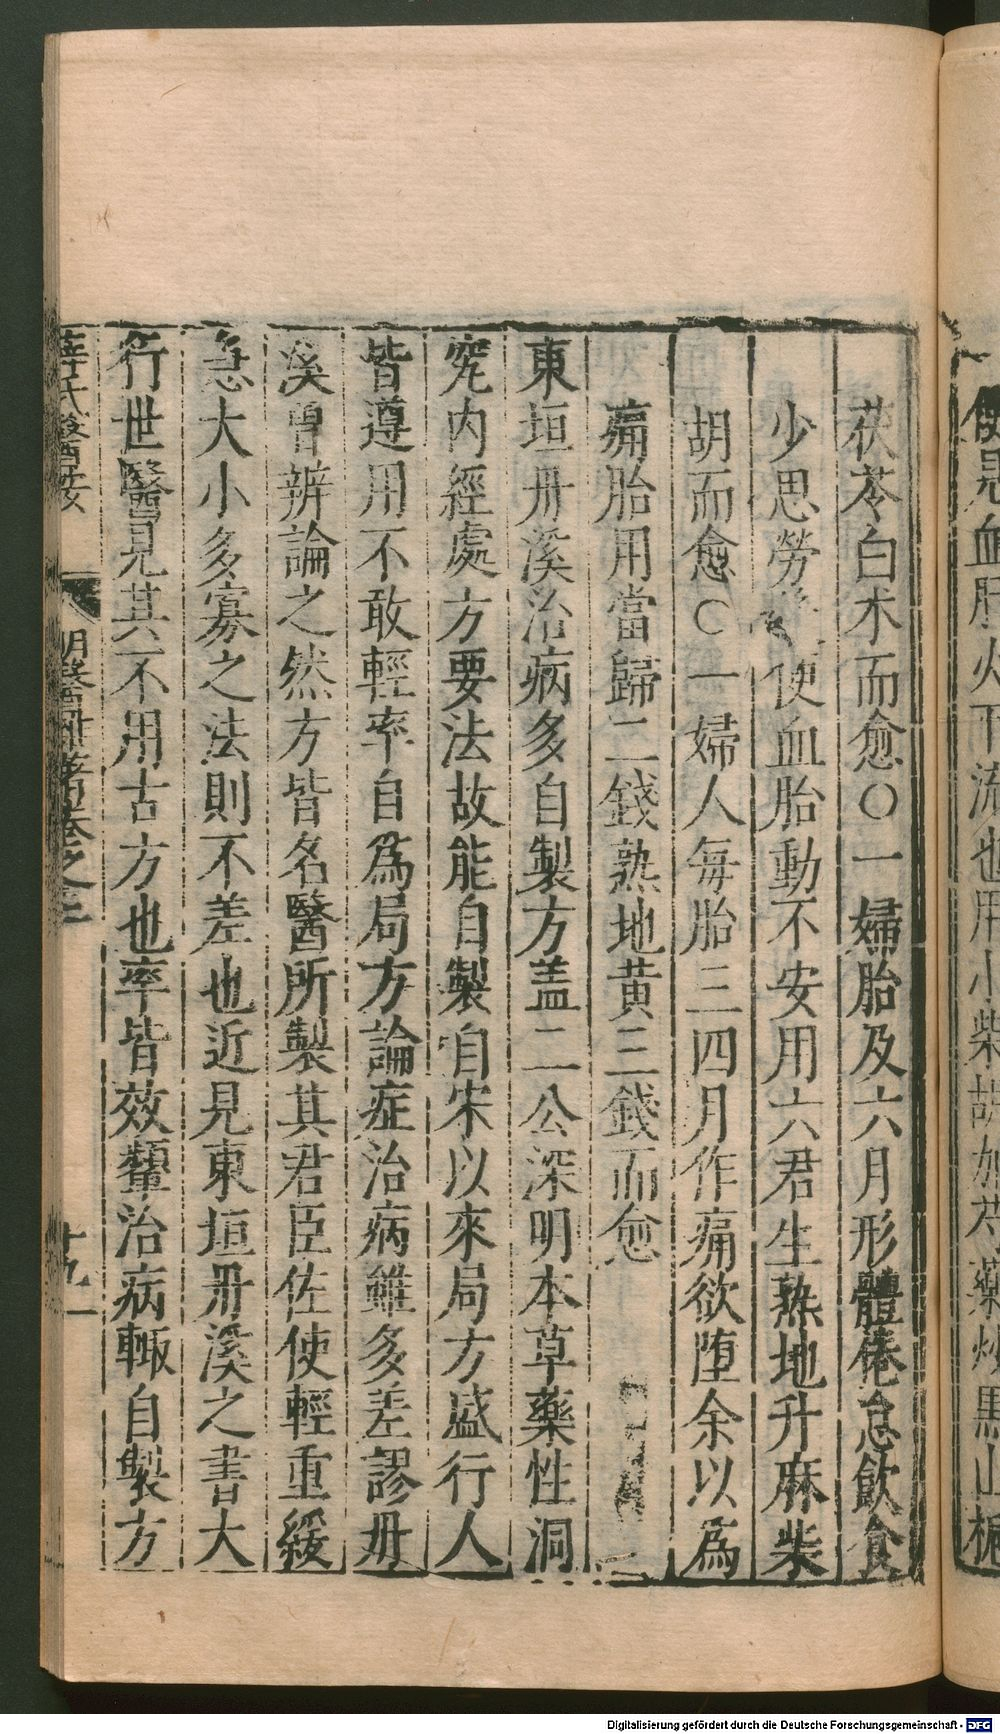 便患血肝火下流也用小柴胡加芍藥炒黑山梔
茯苓白朮而愈○一婦胎及六月形體倦怠飲食
少思勞後便血胎動不安用六君生熟地升麻柴
胡而愈○一婦人每胎三四月作痛欲墮余以為
痛胎用當歸二錢熟地黃三錢而愈
東垣丹溪治病多自製方盖二公深明本草藥性洞
究内經處方要法故能自製自宋以來局方盛行人
皆遵用不敢輕率自為局方論症治病雖多差謬丹
溪曽辨論之然方皆名醫所製其君臣佐使輕重緩
急大小多寡之法則不差也近見東垣丹溪之書大
行世醫見其不用古方也率皆效顰治病輙自製方
薛氏醫案
明醫雜著卷之三
十九
Digitalisierung gefördert durch die Deutsche Forschungsgemeinschaft - DFG